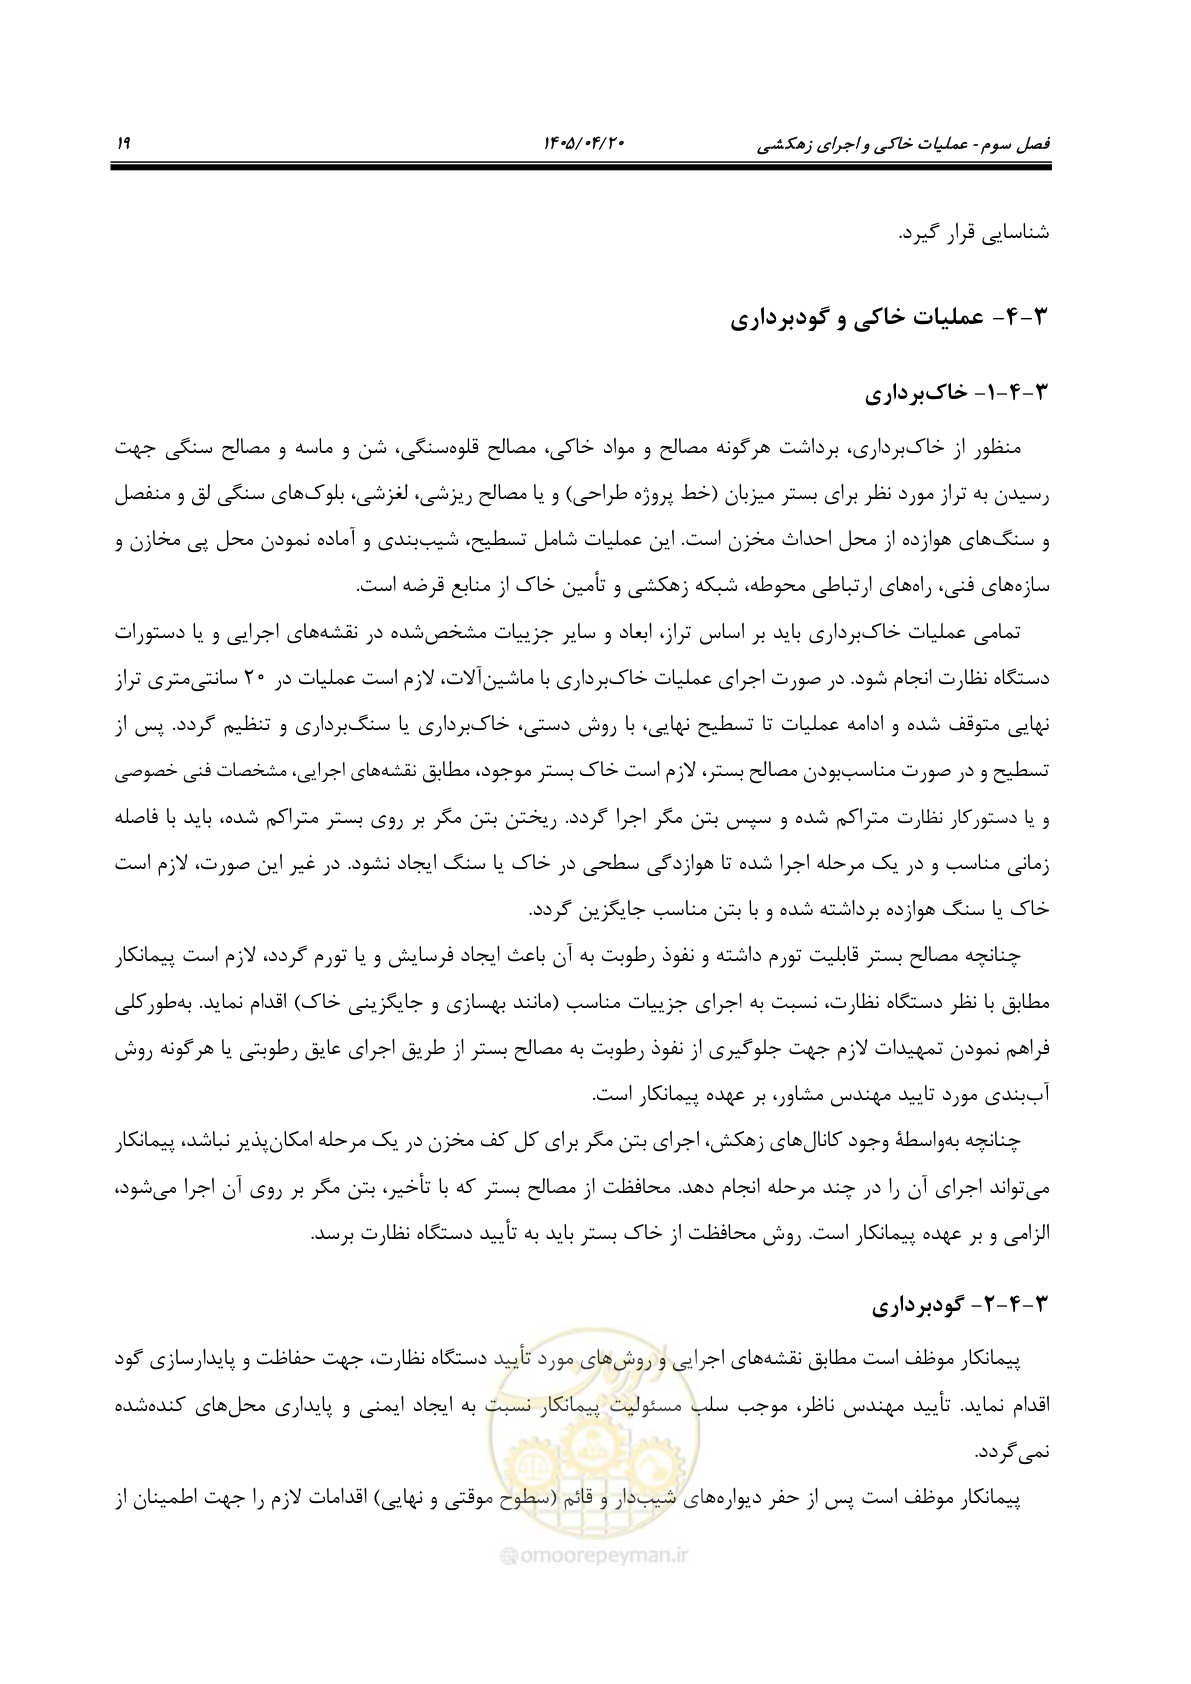 فصل سوم - عملیات خاکی و اجرای زهکشی ۱۴۰۵/۰۴/۲۰ ۱۹
شناسایی قرار گیرد.
۳-۴- عملیات خاکی و گودبرداری
۳-۴-۱- خاک‌برداری
منظور از خاک‌برداری، برداشت هرگونه مصالح و مواد خاکی، مصالح قلوه‌سنگی، شن و ماسه و مصالح سنگی جهت
رسیدن به تراز مورد نظر برای بستر میزبان (خط پروژه طراحی) و یا مصالح ریزشی، لغزشی، بلوک‌های سنگی لق و منفصل
و سنگ‌های هوازده از محل احداث مخزن است. این عملیات شامل تسطیح، شیب‌بندی و آماده نمودن محل پی مخازن و
سازه‌های فنی، راه‌های ارتباطی محوطه، شبکه زهکشی و تأمین خاک از منابع قرضه است.
تمامی عملیات خاک‌برداری باید بر اساس تراز، ابعاد و سایر جزییات مشخص‌شده در نقشه‌های اجرایی و یا دستورات
دستگاه نظارت انجام شود. در صورت اجرای عملیات خاک‌برداری با ماشین‌آلات، لازم است عملیات در ۲۰ سانتی‌متری تراز
نهایی متوقف شده و ادامه عملیات تا تسطیح نهایی، با روش دستی، خاک‌برداری یا سنگ‌برداری و تنظیم گردد. پس از
تسطیح و در صورت مناسب‌بودن مصالح بستر، لازم است خاک بستر موجود، مطابق نقشه‌های اجرایی، مشخصات فنی خصوصی
و یا دستورکار نظارت متراکم شده و سپس بتن مگر اجرا گردد. ریختن بتن مگر بر روی بستر متراکم شده، باید با فاصله
زمانی مناسب و در یک مرحله اجرا شده تا هوازدگی سطحی در خاک یا سنگ ایجاد نشود. در غیر این صورت، لازم است
خاک یا سنگ هوازده برداشته شده و با بتن مناسب جایگزین گردد.
چنانچه مصالح بستر قابلیت تورم داشته و نفوذ رطوبت به آن باعث ایجاد فرسایش و یا تورم گردد، لازم است پیمانکار
مطابق با نظر دستگاه نظارت، نسبت به اجرای جزییات مناسب (مانند بهسازی و جایگزینی خاک) اقدام نماید. به‌طورکلی
فراهم نمودن تمهیدات لازم جهت جلوگیری از نفوذ رطوبت به مصالح بستر از طریق اجرای عایق رطوبتی یا هرگونه روش
آب‌بندی مورد تایید مهندس مشاور، بر عهده پیمانکار است.
چنانچه به‌واسطهٔ وجود کانال‌های زهکش، اجرای بتن مگر برای کل کف مخزن در یک مرحله امکان‌پذیر نباشد، پیمانکار
می‌تواند اجرای آن را در چند مرحله انجام دهد. محافظت از مصالح بستر که با تأخیر، بتن مگر بر روی آن اجرا می‌شود،
الزامی و بر عهده پیمانکار است. روش محافظت از خاک بستر باید به تأیید دستگاه نظارت برسد.
۳-۴-۲- گودبرداری
پیمانکار موظف است مطابق نقشه‌های اجرایی و روش‌های مورد تأیید دستگاه نظارت، جهت حفاظت و پایدارسازی گود
اقدام نماید. تأیید مهندس ناظر، موجب سلب مسئولیت پیمانکار نسبت به ایجاد ایمنی و پایداری محل‌های کنده‌شده
نمی‌گردد.
پیمانکار موظف است پس از حفر دیواره‌های شیب‌دار و قائم (سطوح موقتی و نهایی) اقدامات لازم را جهت اطمینان از
@omoorepeyman.ir